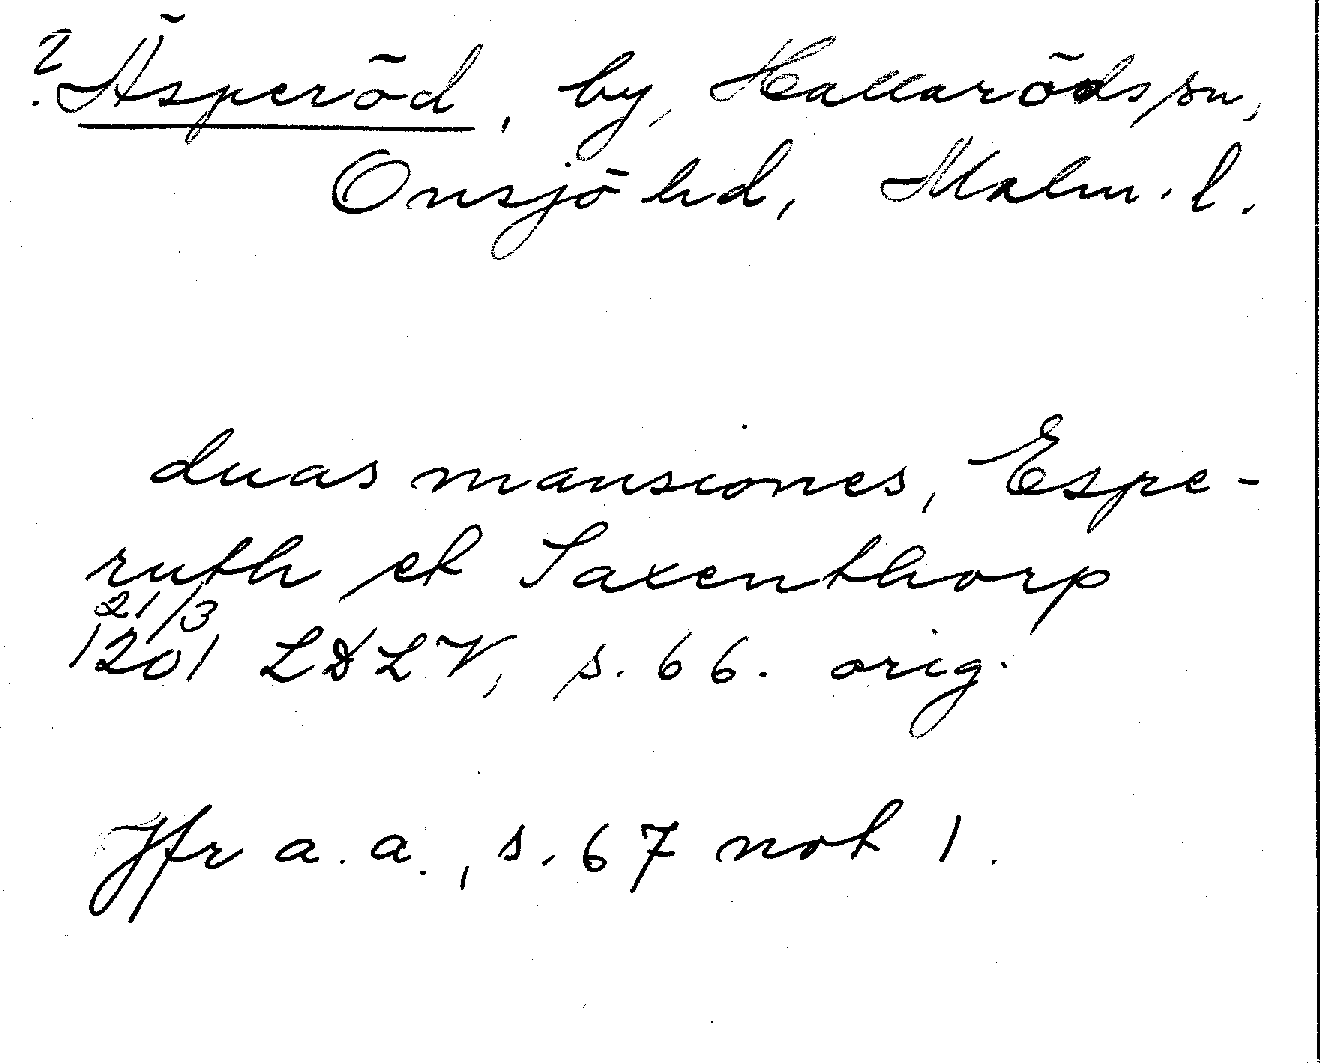 ? Äsperöd, by, Hallaröds sn,
Onsjö hd, Malm. l.
duas mansiones, Espe-
ruth et Saxenthorp
21/3
1201 LDLV, s. 66. orig.
Jfr a. a., s. 67 not 1.